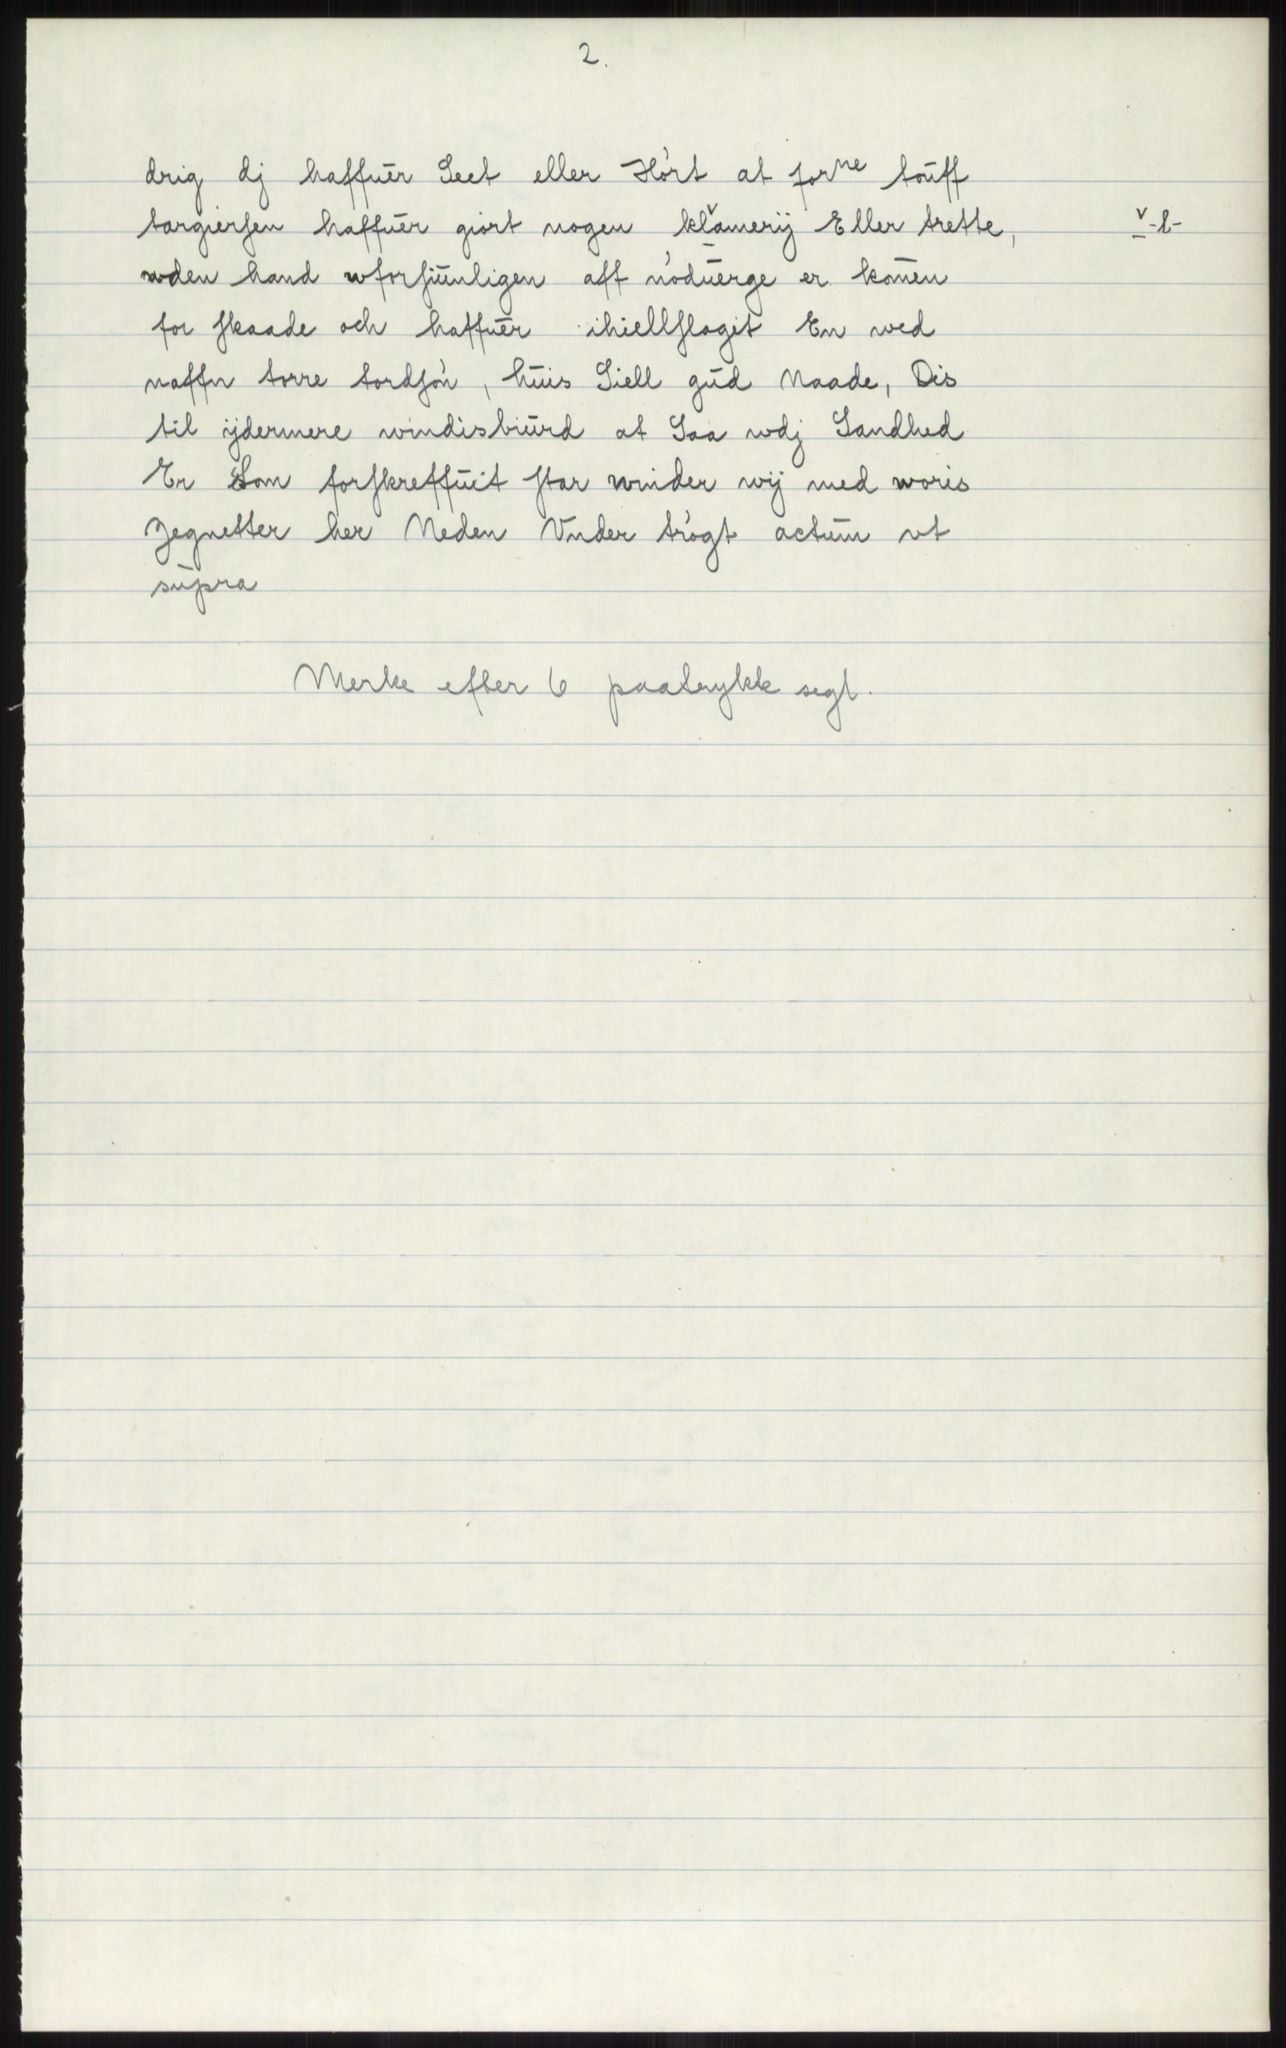 2.
drig dj haffuer Seet eller Hórt at for^ne toūff
torgiersen haffūer giort nogen klamerij Eller trette, v -l-
wden hand wforsūnligen aff nódūerge er komen
for skaade och haffūer ihiellslagit En wed
naffn torre tordsón, hūis Siell gūd Naade, Dis
til ijdermere windisbiūrd at Saa wdj Sandhed
Er Som forskreffūit star winder wij med woris
Zegnetter her Neden Vnder trógt actūm vt
sūpra
Merke efter 6 paatrykte segl.